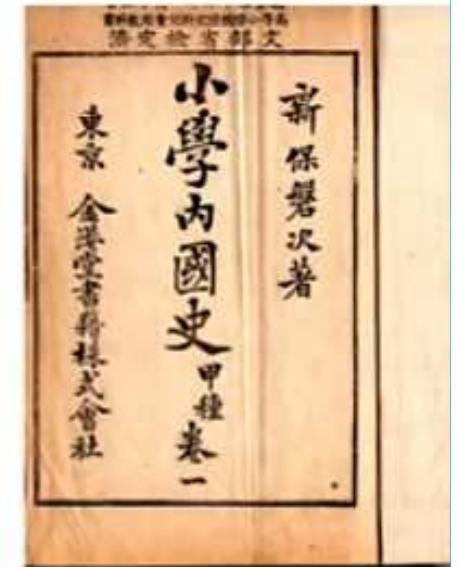 文部省檢定濟
新保磐次著
小學內國史 甲種 卷一
東京 金港堂書籍株式會社